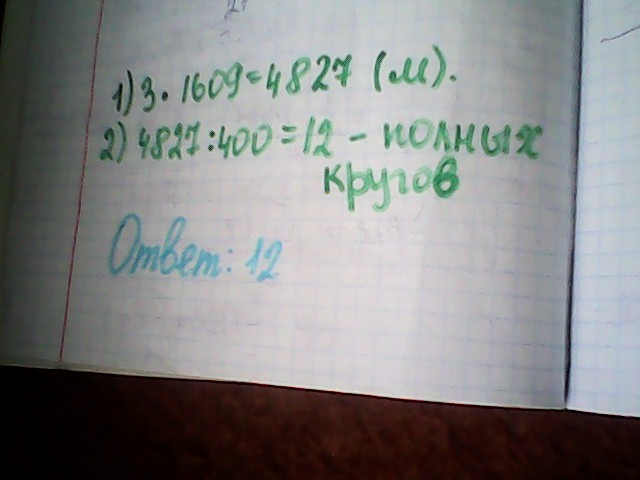 1) 3 · 1609 = 4827 (м).
2) 4827 : 400 = 12 - полных
кругов
Ответ: 12